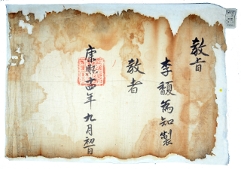 教旨
李馥爲知製
教者
康熙 年九月初 日